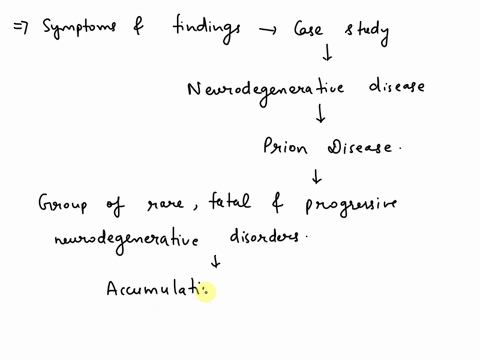 ⇒ Symptoms & findings → Case study
↓
Neurodegenerative disease
↓
Prion Disease.
↓
Group of rare, fatal & progressive
neurodegenerative disorders.
↓
Accumulati